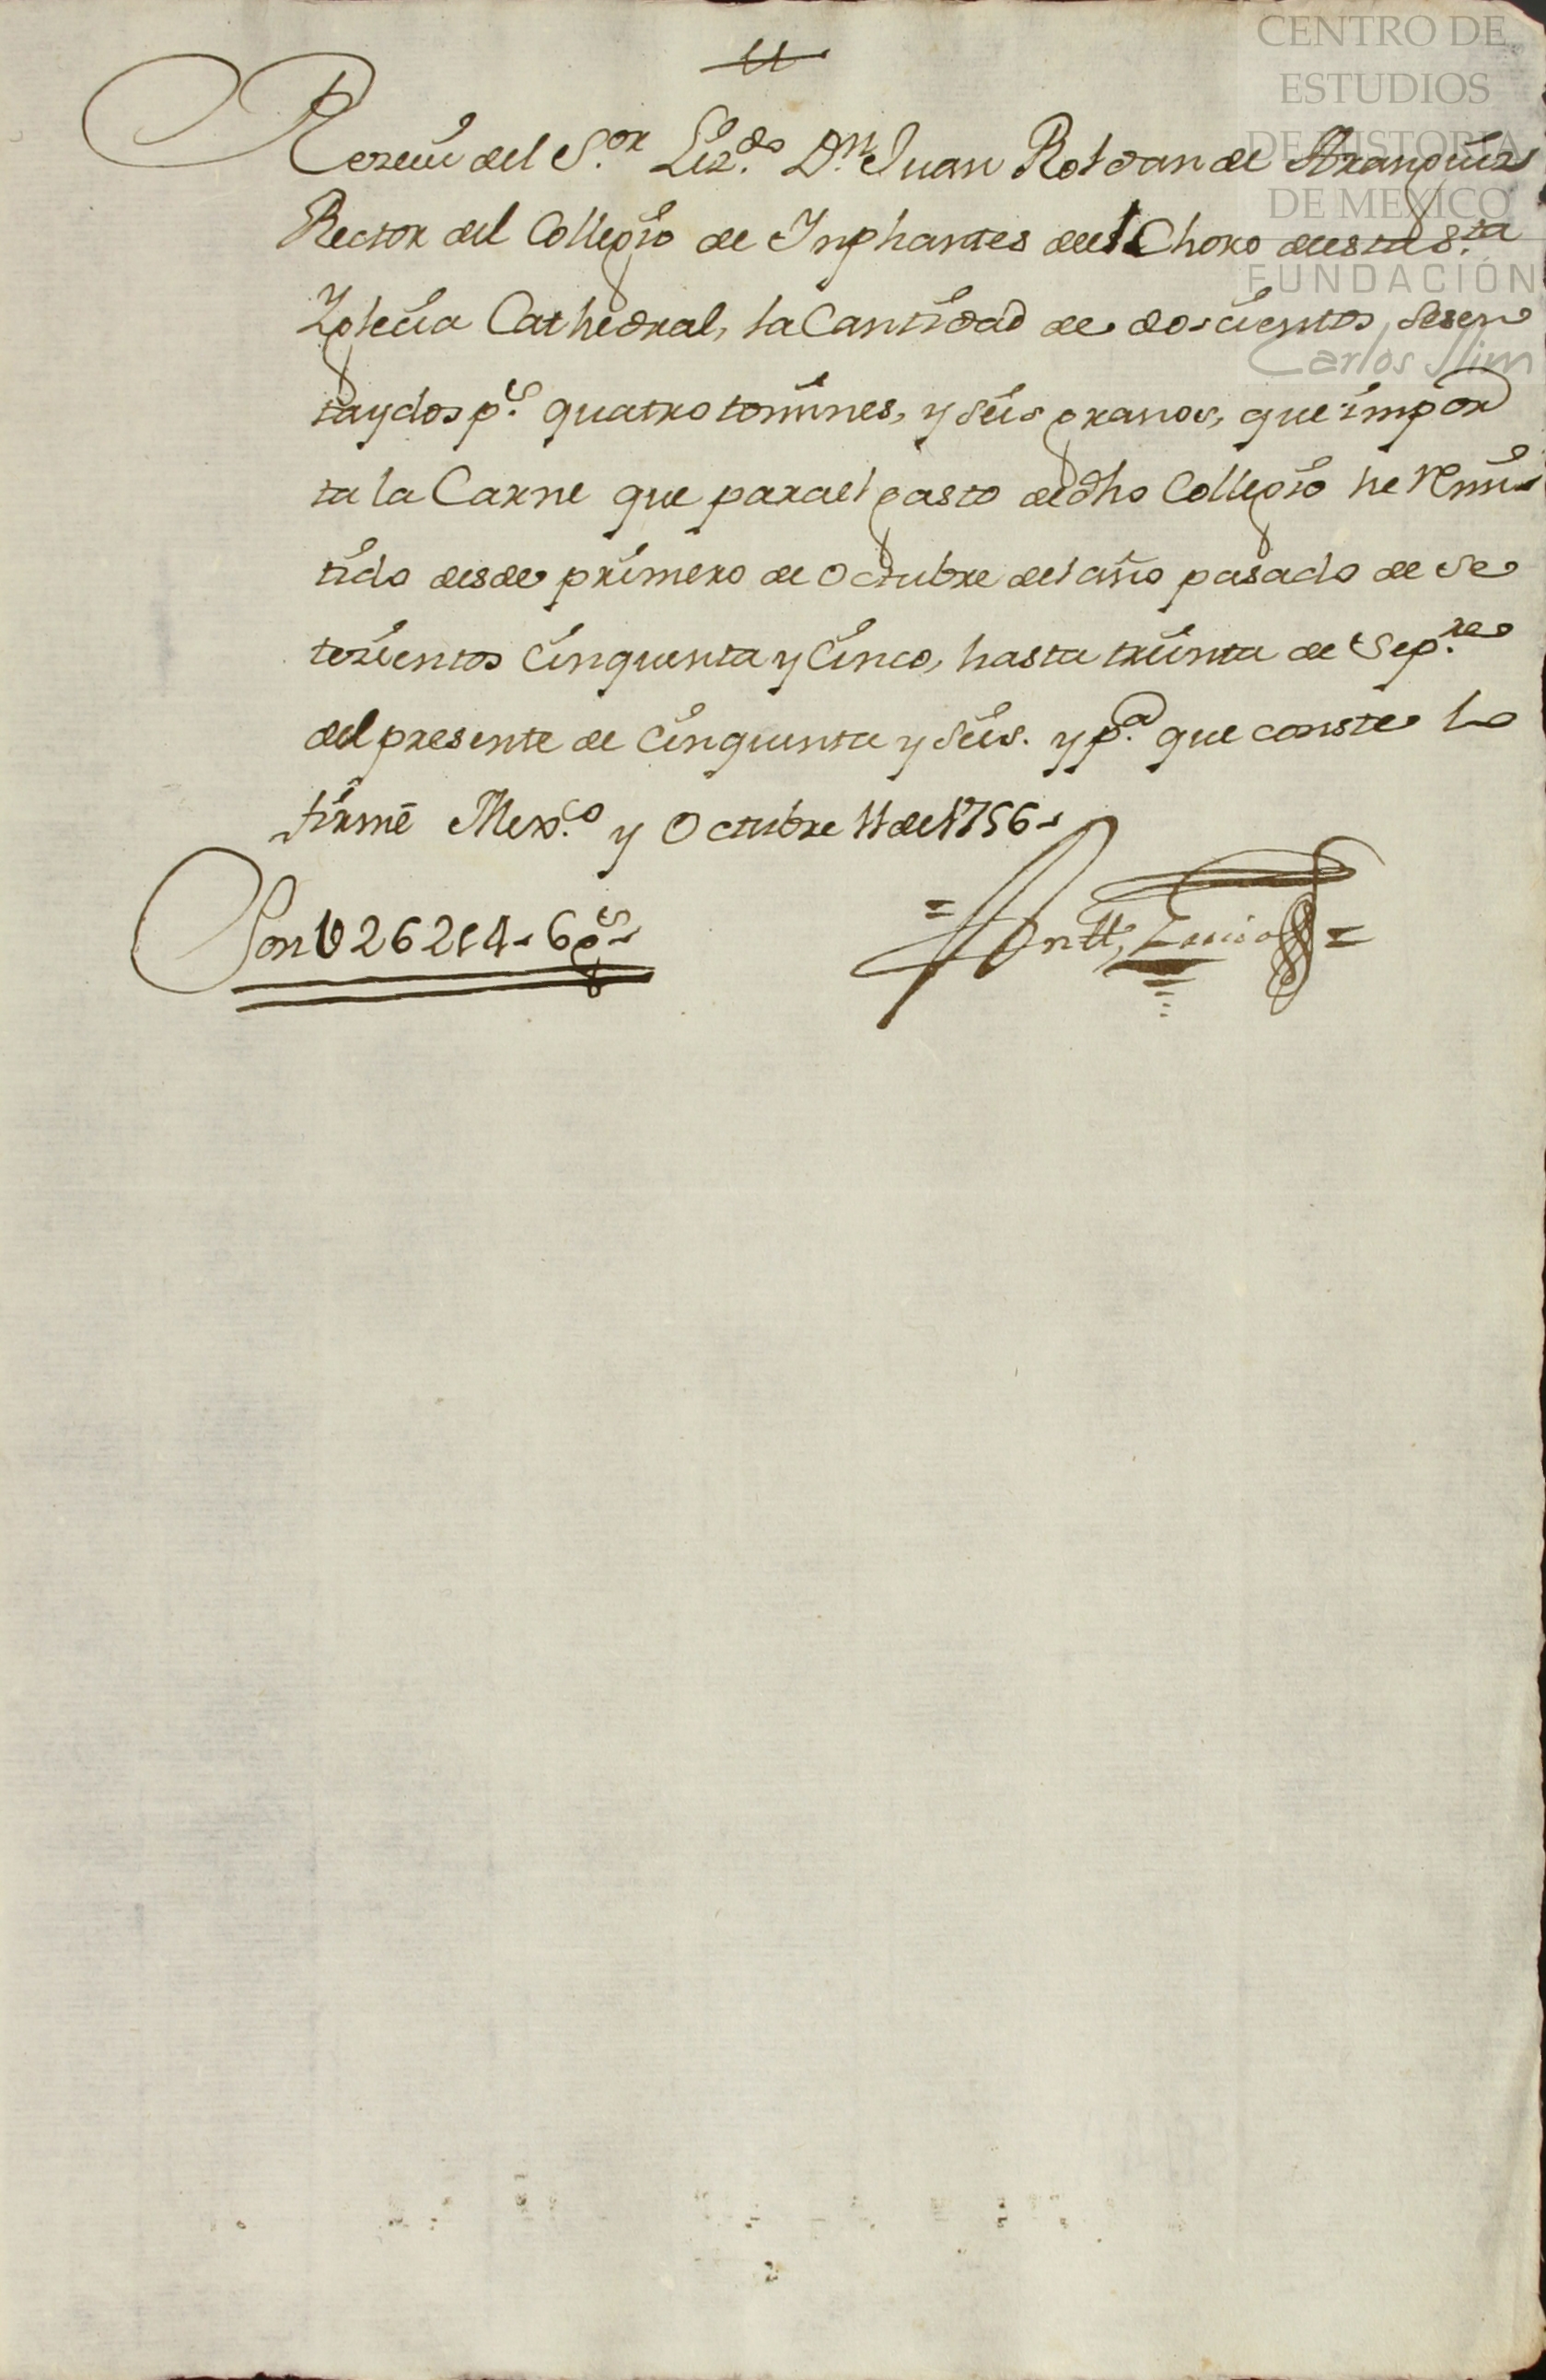 Rezeui del S.or Liz.do D.n Juan Roldan de Aranguiz
Rector del Collegio de Inphantes del Choro desta S.ta
Iglecia Cathedral, la Cantidad de doscientos, sesen
ta y dos p.s quatro tomines, y seis granos, que impor
ta la Carne que para el gasto de dho Collegio he remi
tido desde primero de Octubre del año pasado de Se
tezientos Cinquenta y Cinco, hasta treinta de Sep.re
del presente de Cinquenta y Seis. y p.a que conste lo
firmé Mex.co y Octubre 11 de 1756
Son U 262 p 4 - 6 g.s
CENTRO DE
ESTUDIOS
DE HISTORIA
DE MEXICO
FUNDACIÓN
Carlos Slim